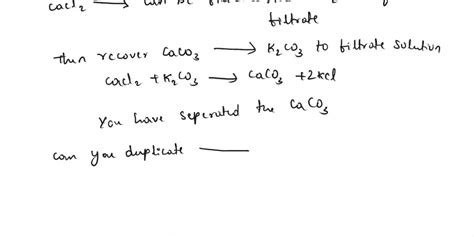 CaCl₂ ⟶ can be
filtrate
Then recover CaCO₃ ⟶ K₂CO₃ to filtrate solution
CaCl₂ + K₂CO₃ ⟶ CaCO₃ + 2KCl
You have seperated the CaCO₃
can you duplicate ——